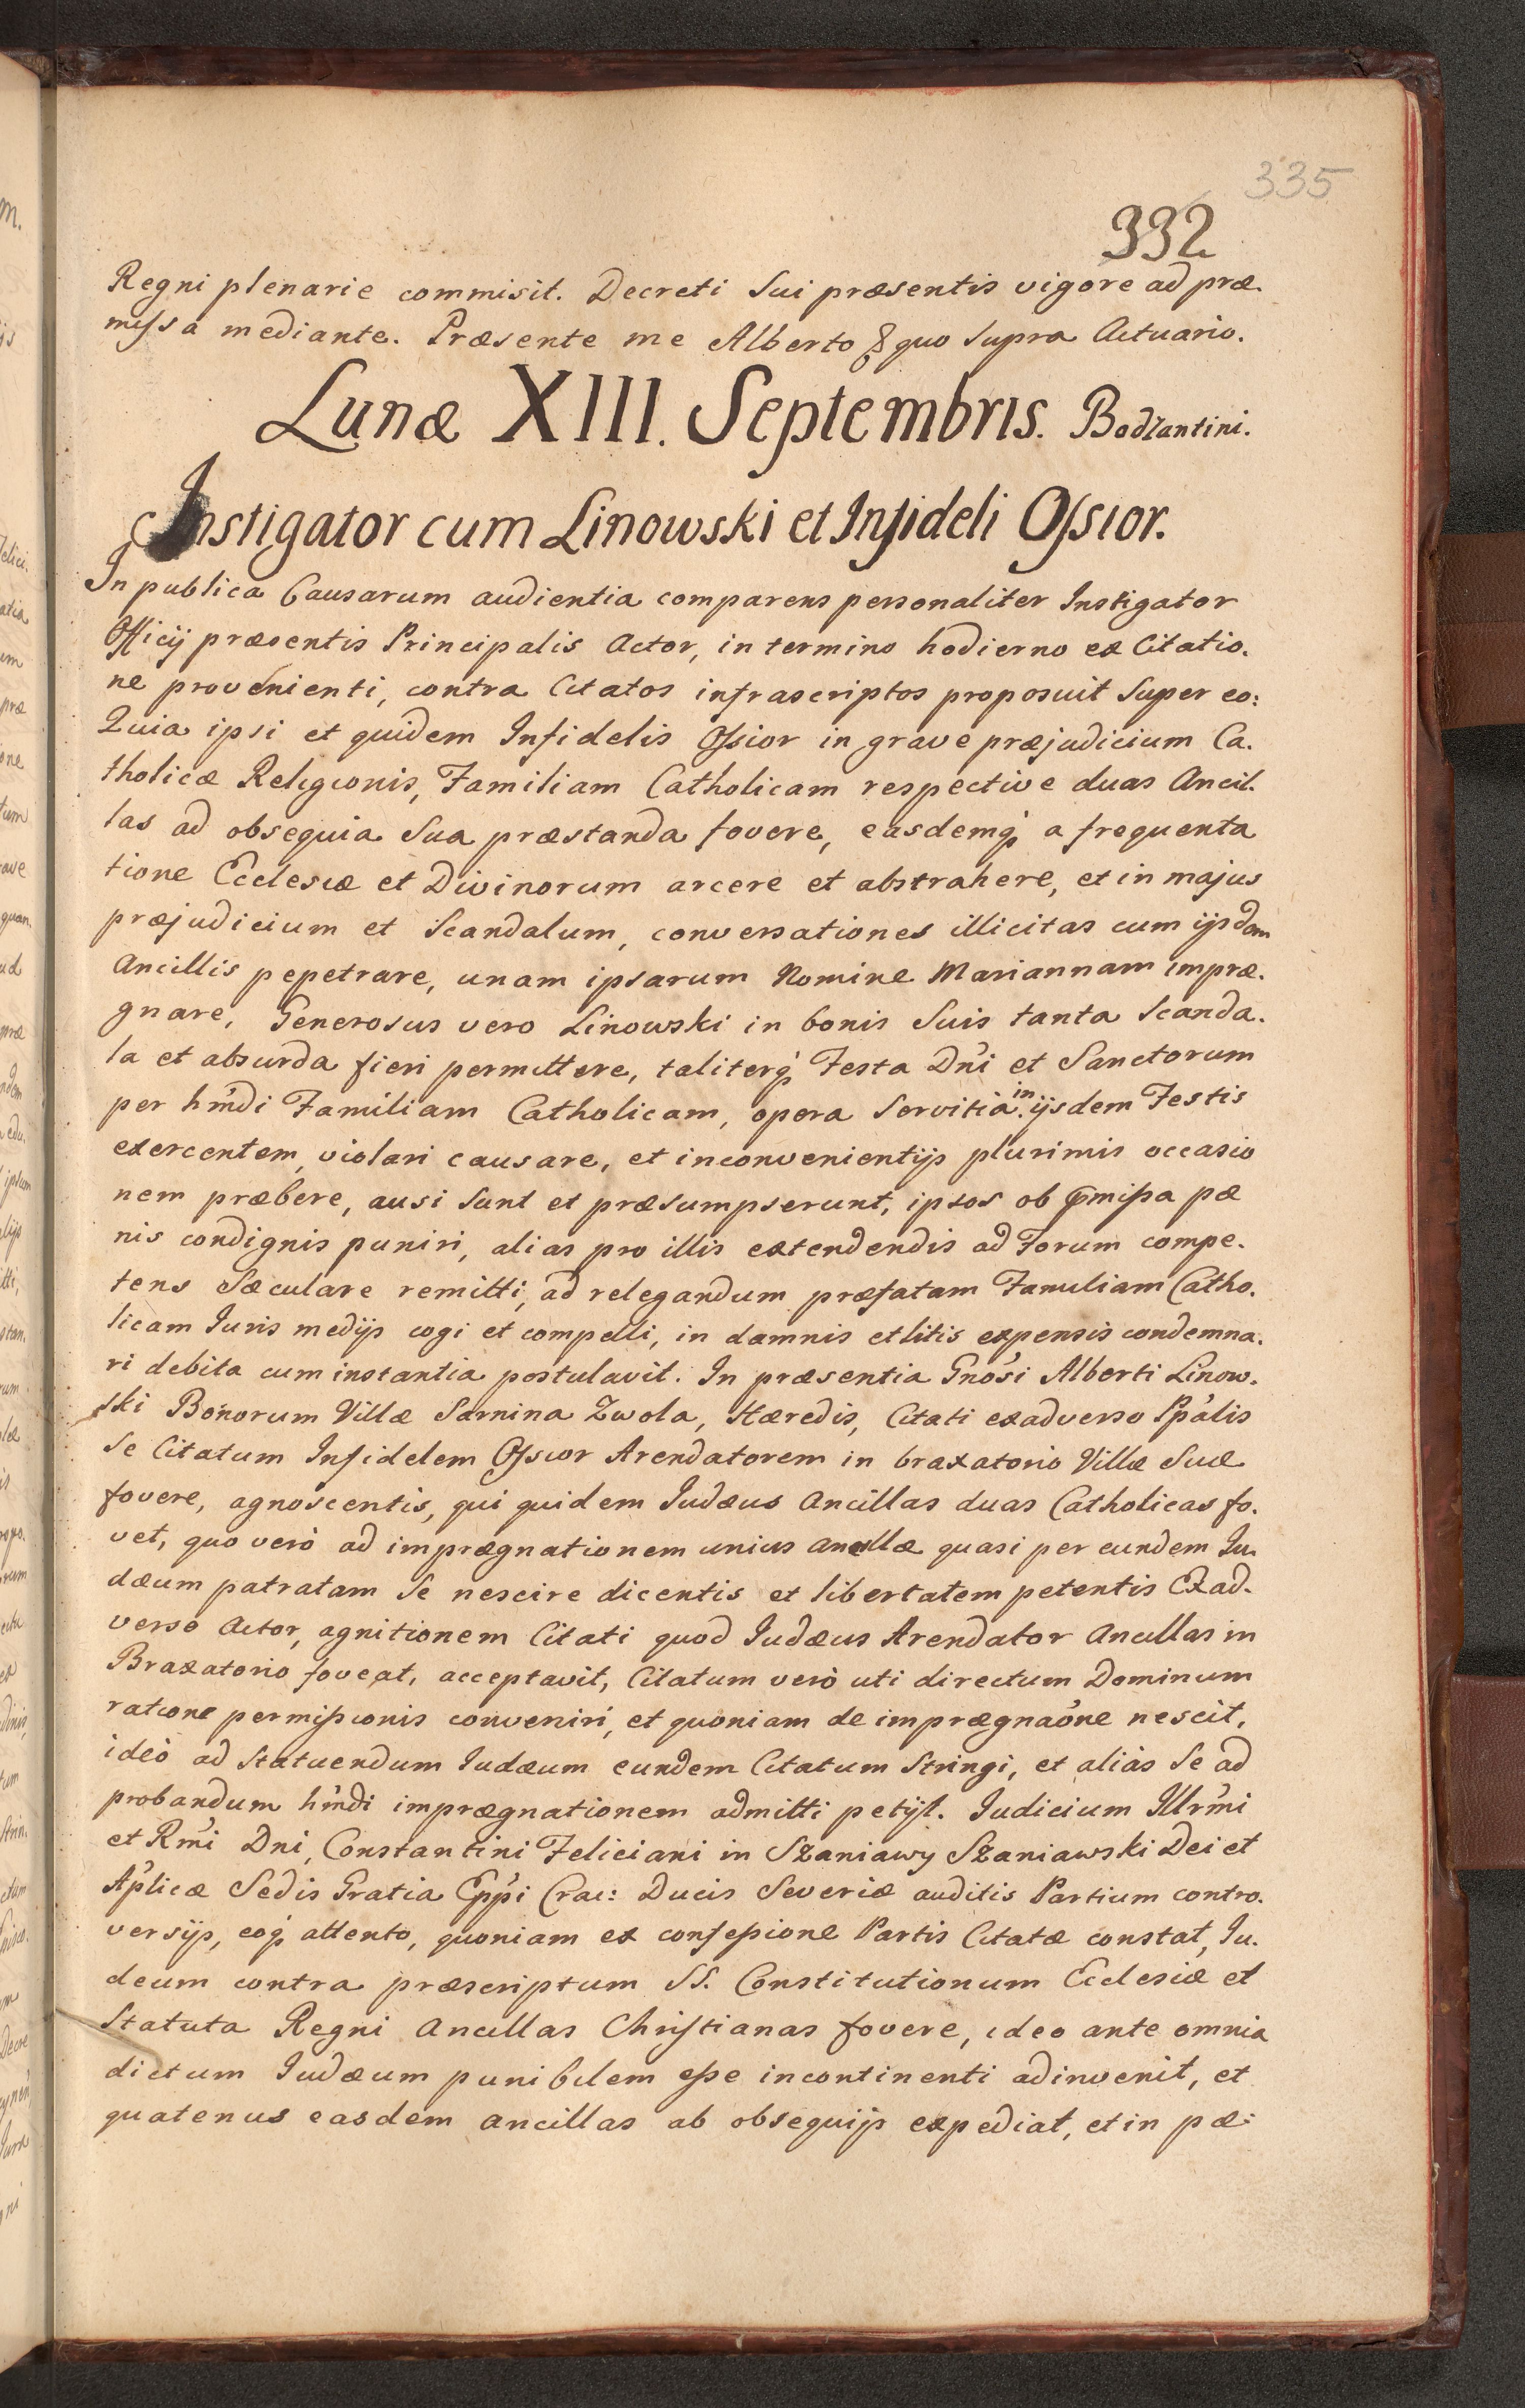 335
332
Regni plenarie commisit. Decreti Sui præsentis vigore ad præ.
missa mediante. Præsente me Alberto & quo supra Actuario.
Lunæ XIII. Septembris. Bodzantini.
Instigator cum Linowski et Infideli Ossior.
In publica Causarum audientia comparens personaliter Instigator
Officij præsentis Principalis Actor, in termino hodierno ex Citatio.
ne provenienti, contra Citatos infrascriptos proposuit super eo:
Quia ipsi et quidem Infidelis Ossior in grave præjudicium Ca.
tholicæ Religionis, Familiam Catholicam respective duas Ancil.
las ad obsequia Sua præstanda fovere, easdemq́ a frequenta
tione Ecclesiæ et Divinorum arcere et abstrahere, et in majus
præjudicium et Scandalum, conversationes illicitas cum ijsdem
Ancillis pepetrare, unam ipsarum Nomine Mariannam impræ.
gnare, Generosus vero Linowski in bonis Suis tanta Scanda.
la et absurda fieri permittere, taliterq́ Festa Dńi et Sanctorum
per hm̃di Familiam Catholicam, opera Servitia in ijsdem Festis
exercentem, violari causare, et inconvenientijs plurimis occasio
nem præbere, ausi sunt et præsumpserunt, ipsos ob p̃missa pæ
nis condignis puniri, alias pro illis extendendis ad Forum compe.
tens Sæculare remitti, ad relegandum præfatam Familiam Catho.
licam Iuris medijs cogi et compelli, in damnis et litis expensis condemna.
ri debita cum instantia postulavit. In præsentia Gnósi Alberti Linow.
ski Bonorum Villæ Sarnina Zwola, Hæredis, Citati ex adverso Ppális
Se Citatum Infidelem Ossior Arendatorem in braxatorio Villæ Suæ
fovere, agnoscentis, qui quidem Iudæus Ancillas duas Catholicas fo.
vet, quo verò ad imprægnationem unius ancillæ quasi per eundem Iu.
dæum patratam Se nescire dicentis et libertatem petentis Ex ad.
verso Actor, agnitionem Citati quod Iudæus Arendator Ancillas in
Braxatorio foveat, acceptavit, Citatum verò uti directum Dominum
ratione permissionis conveniri, et quoniam de imprægnaóne nescit,
ideò ad Statuendum Iudæum eundem Citatum Stringi, et aliàs Se ad
probandum hm̃di imprægnationem admitti petijt. Iudicium Illrm̃i
et Rm̃i Dni, Constantini Feliciani in Szaniawy Szaniawski Dei et
Aplicæ Sedis Gratia Epp̃i Crac: Ducis Severiæ auditis Partium contro.
versijs, eoq́ attento, quoniam ex confessione Partis Citatæ constat, Iu.
deum contra præscriptum SS. Constitutionum Ecclesiæ et
Statuta Regni Ancillas Christianas fovere, ideo ante omnia
dictum Iudæum punibilem esse incontinenti adinvenit, et
quatenus easdem ancillas ab obsequijs expediat, et in pæ: